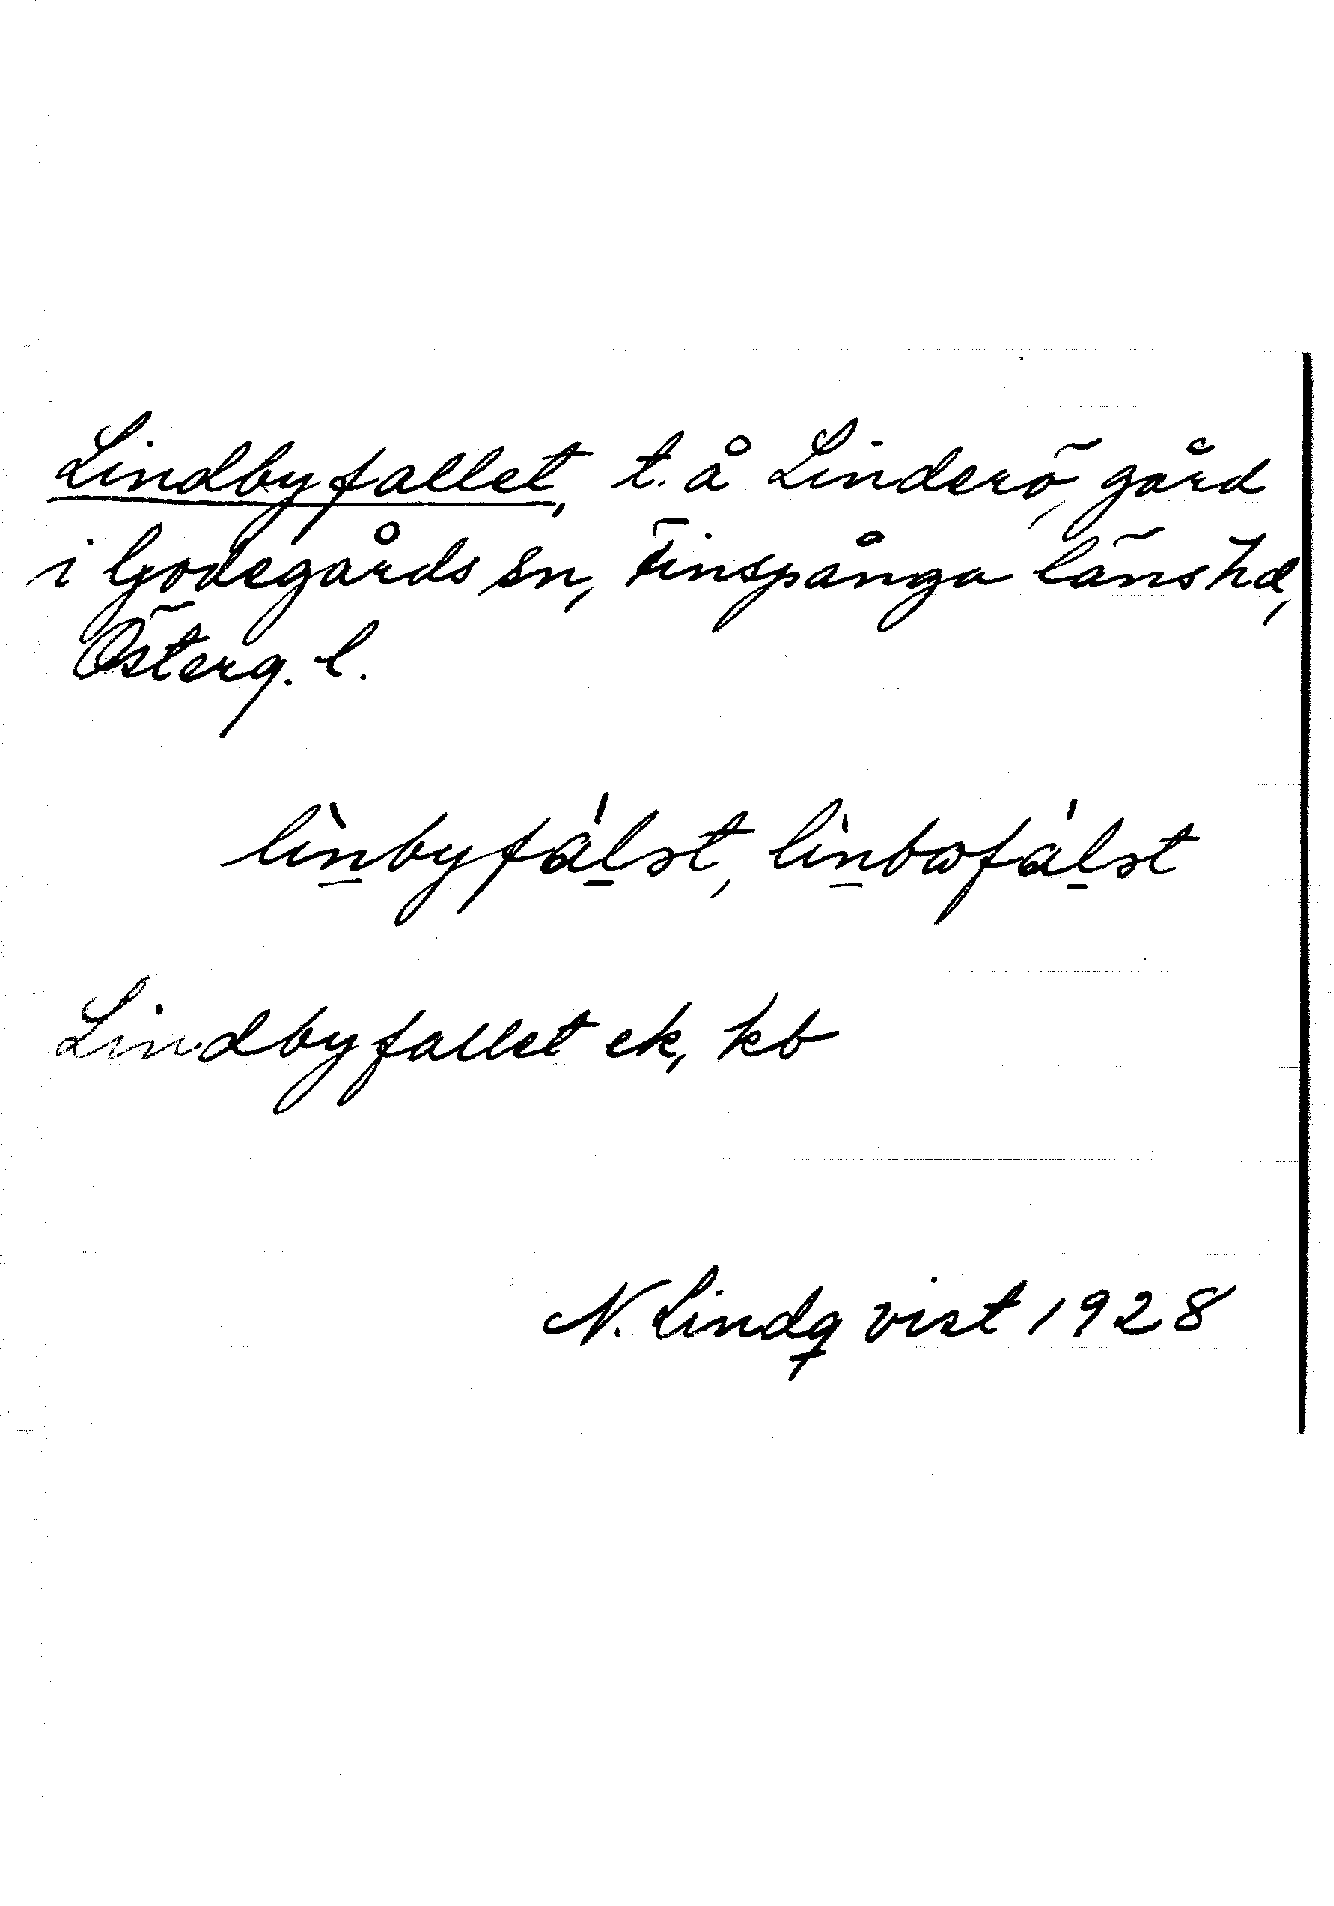 Lindbyfallet, t. å Linderö, gård
i Godegårds sn, Finspånga läns hd,
Österg. l.
lìnbyfálst, lìnbωfálst
Lindbyfallet ek, kb
N. Lindqvist 1928